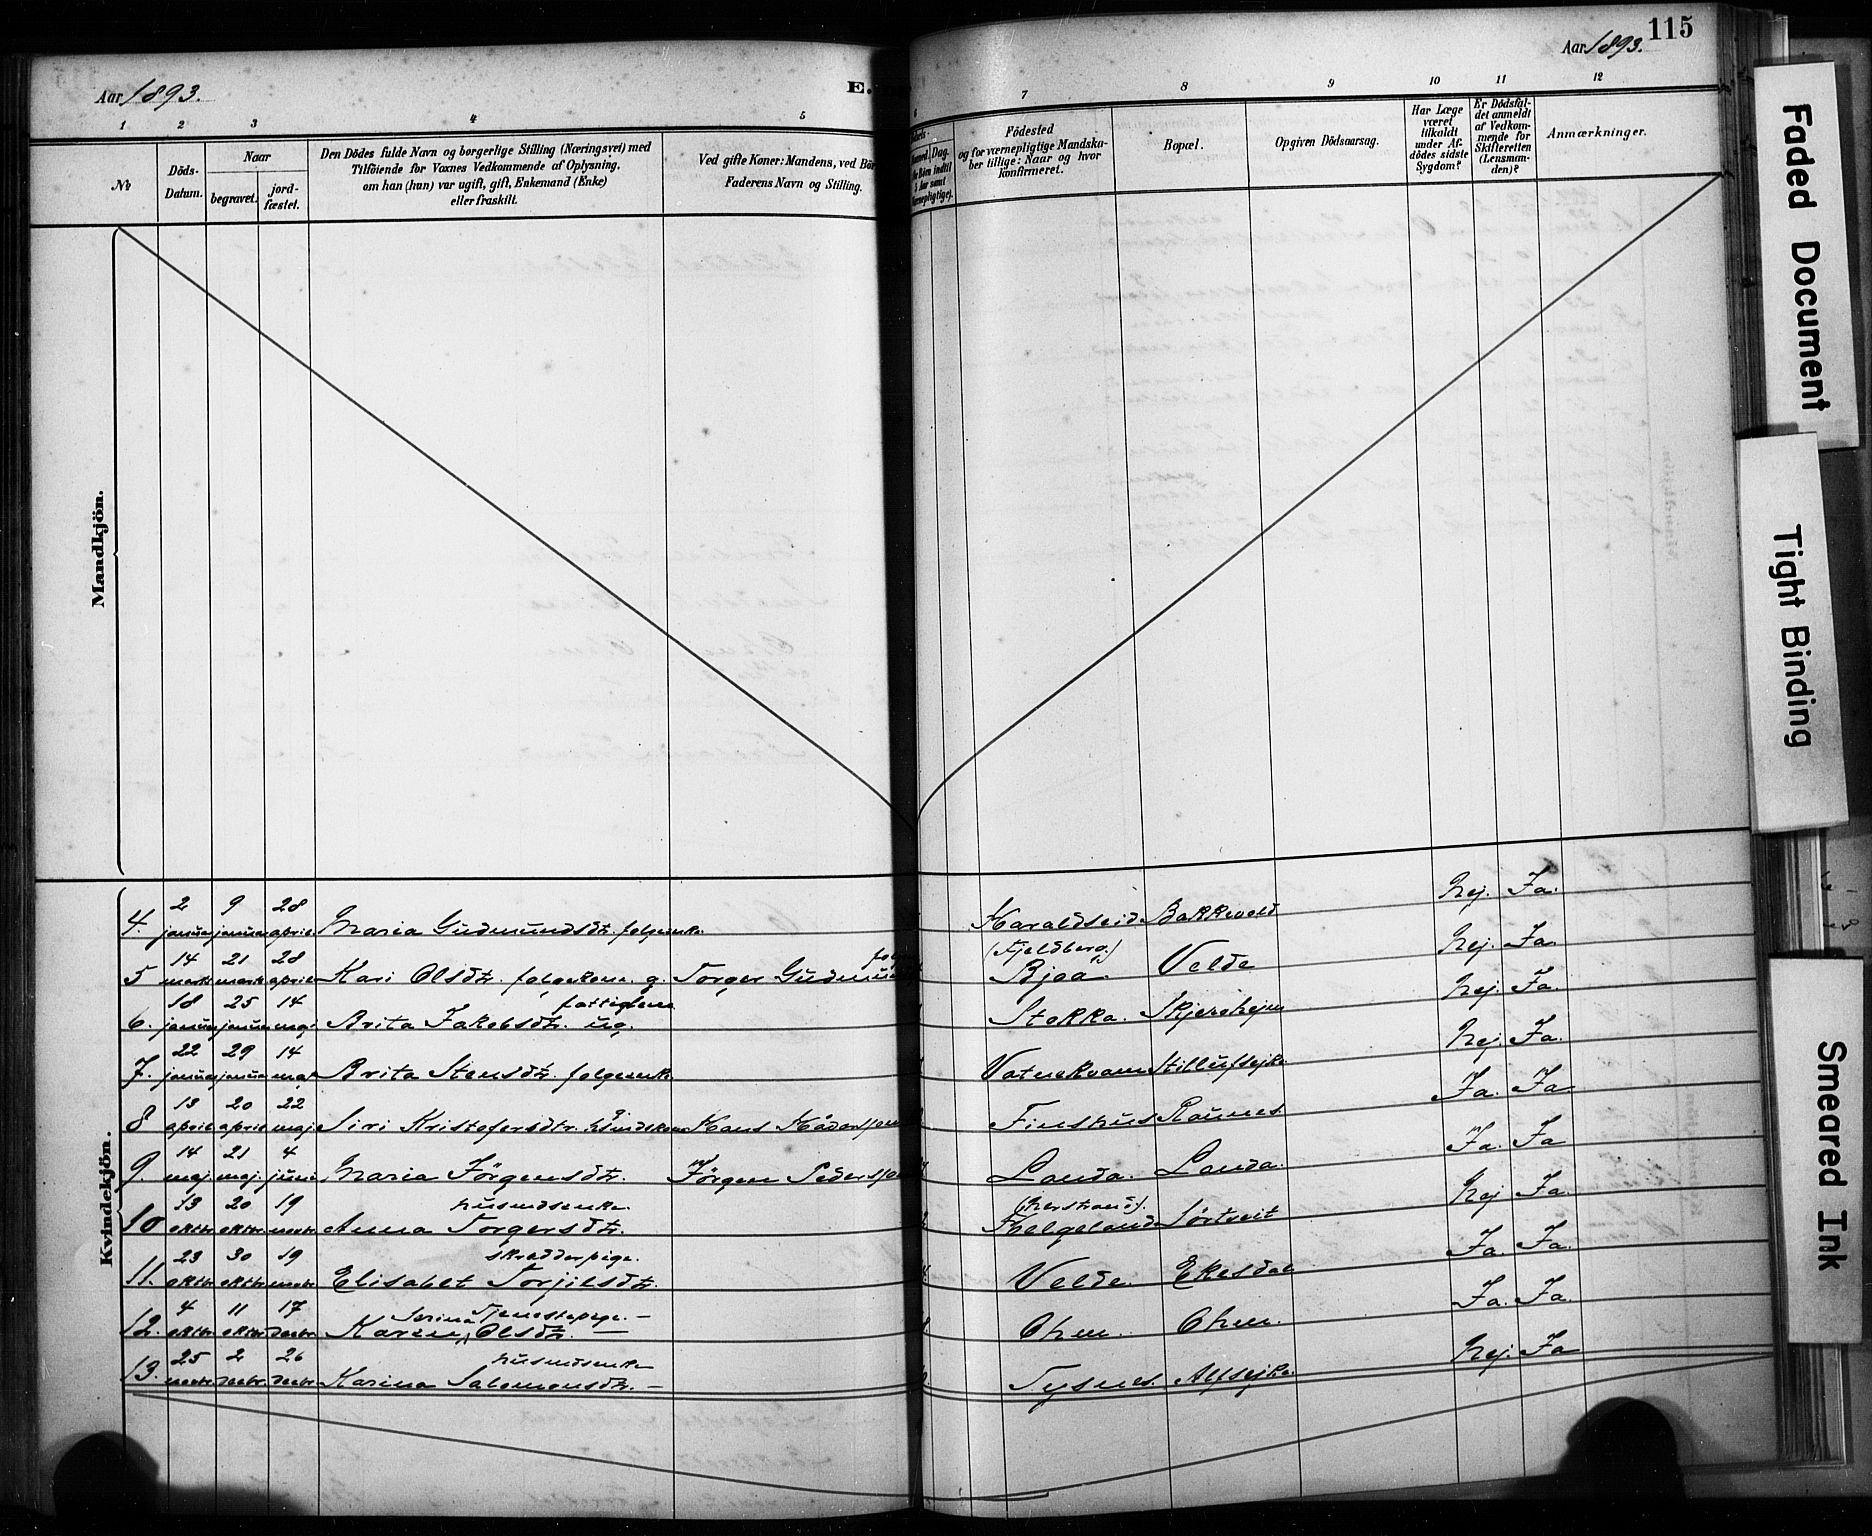 115
Aar 1893.
E.
Aar 1893.
1 2 3 4 5 6 7 8 9 10 11 12
No
Döds-Datum.
Naar
begravet.
jord-fæstet.
Den Dödes fulde Navn og borgerlige Stilling (Næringsvei) med
Tilföiende for Voxnes Vedkommende af Oplysning,
om han (hun) var ugift, gift, Enkemand (Enke)
eller fraskilt.
Ved gifte Koner: Mandens, ved Bör
Faderens Navn og Stilling.
Dag.
Födested
og for værnepligtige Mandska-
ber tillige: Naar og hvor
konfirmeret.
Bopæl.
Opgiven Dödsaarsag.
Har Læge
været
tilkaldt
under Af-
dödes sidste
Sygdom?
Er Dödsfal-
det anmeldt
af Vedkom-
mende for
Skifteretten
(Lensman-
den)?
Anmærkninger.
Mandkjön.
Kvindekjön.
2 9 28
4. januar januar april Maria Gudmundsdtr. folgeenke. Haraldseid Bakkevold Nej. Ja.
14 21 28 (Fjeldberg)
5 marts marts april Kari Olsdtr. folgekone. g. Torger Gudmun Bjoa. Velde Nej. Ja.
18 25 14 fattiglem
6. januar januar maj Brita Jakobsdtr. ug. Stokka. Nej. Ja.
22 29 14
7. januar januar maj Brita Stensdtr. folgeenke Vatnekvam Nej. Ja.
13 20 22
8 april april maj Siri Kristofersdtr. Hans Finshus Raunes Ja. Ja
14 21 4
9. maj. maj. juni Maria Jörgensdtr. Jörgen Peders Landa. Landa. Ja. Ja
13 20 19 husmdsenke. (Nerstrand).
10 oktbr. oktbr. novbr. Anna Torgersdtr. Helgeland Sørtveit Nej Ja.
23 30 19 skredderpige.
11. oktbr. oktbr. novbr. Elisabet Torjilsdtr. Velde. Ekesdal Ja. Ja.
4 11 17 Serina Tjenestepige. —
12. oktbr. oktbr. decbr. Karen Olsdtr. — Ohm. Ohm. Ja. Ja.
25 2 26 husmdsenke
13. novbr. decbr. decbr. Karina Salomonsdtr. — Tysnes. Alfsejke. Nej. Ja
Faded Document
Tight Binding
Smeared Ink